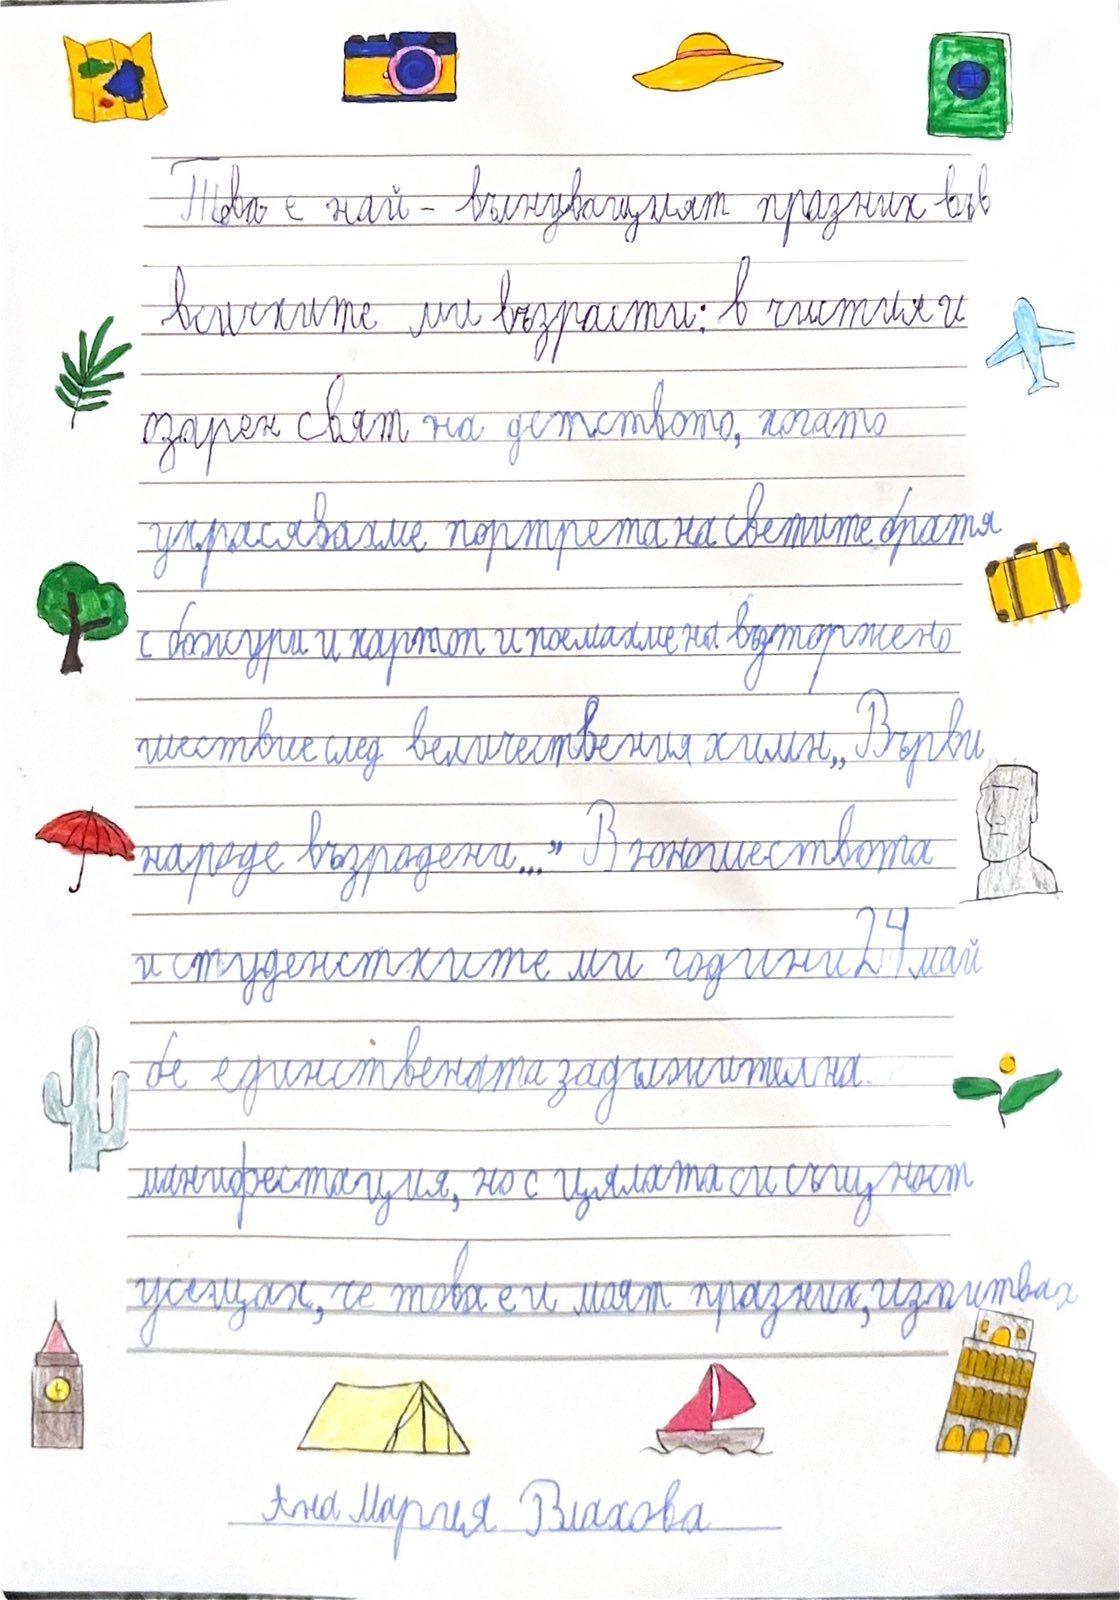 Това е най - вълнуващият празник във
всичките ми възрасти: в чистия и
озарен свят на детството, когато
украсявахме портрета на светите братя
с божури и картон и поемахме на възторжено
шествие след величествения химн „Върви
народе възродени..." В юношеството
и студентските ми години 24 май
бе единствената задължителна
манифестация, но с цялата си същност
усещах, че това е и моят празник, изпитвах
Ана Мария Влахова